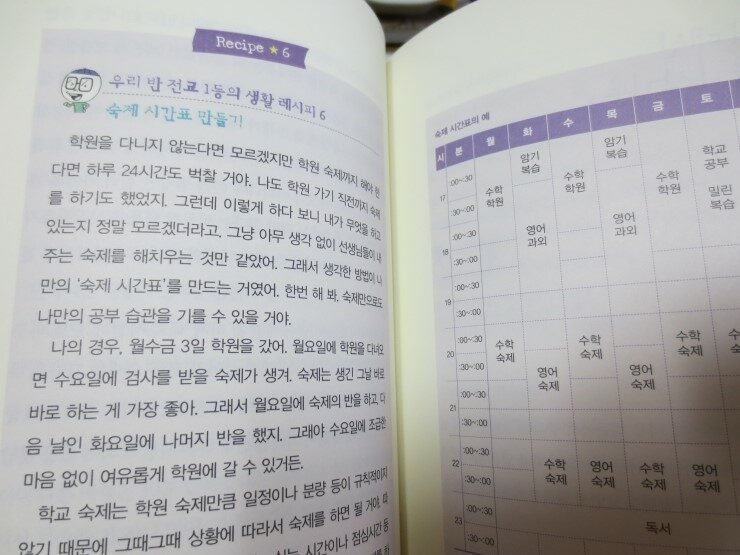 Recipe ★ 6
우리 반 전교 1등의 생활 레시피 6
숙제 시간표 만들기
학원을 다니지 않는다면 모르겠지만 학원 숙제까지 해야 한
다면 하루 24시간도 벅찰 거야. 나도 학원 가기 직전까지 숙제
를 하기도 했었지. 그런데 이렇게 하다 보니 내가 무엇을 하고
있는지 정말 모르겠더라고. 그냥 아무 생각 없이 선생님들이 내
주는 숙제를 해치우는 것만 같았어. 그래서 생각한 방법이 나
만의 '숙제 시간표'를 만드는 거였어. 한번 해 봐. 숙제만으로도
나만의 공부 습관을 기를 수 있을 거야.
나의 경우, 월수금 3일 학원을 갔어. 월요일에 학원을 다녀오
면 수요일에 검사를 받을 숙제가 생겨. 숙제는 생긴 그날 바로
바로 하는 게 가장 좋아. 그래서 월요일에 숙제의 반을 하고, 다
음 날인 화요일에 나머지 반을 했지. 그래야 수요일에 조급한
마음 없이 여유롭게 학원에 갈 수 있거든.
학교 숙제는 학원 숙제만큼 일정이나 분량 등이 규칙적이지
않기 때문에 그때그때 상황에 따라서 숙제를 하면 될 거야. 따
시간이나 점심시간 등
숙제 시간표의 예
시 분 월 화 수 목 금 토
17 :00~:30 수학 학원 암기 복습 수학 학원 암기 복습 수학 학원 학교 공부
:30~:00 밀린 복습
18 :00~:30 영어 과외 영어 과외
:30~:00
19 :00~:30
:30~:00
20 :00~:30 수학 숙제 수학 숙제 수학 숙제 수학 숙제
:30~:00 영어 숙제 영어 숙제
21 :00~:30
:30~:00
22 :00~:30 수학 숙제 영어 숙제 수학 숙제 영어 숙제 영어 숙제
:30~:00
23 :00~:30 독서